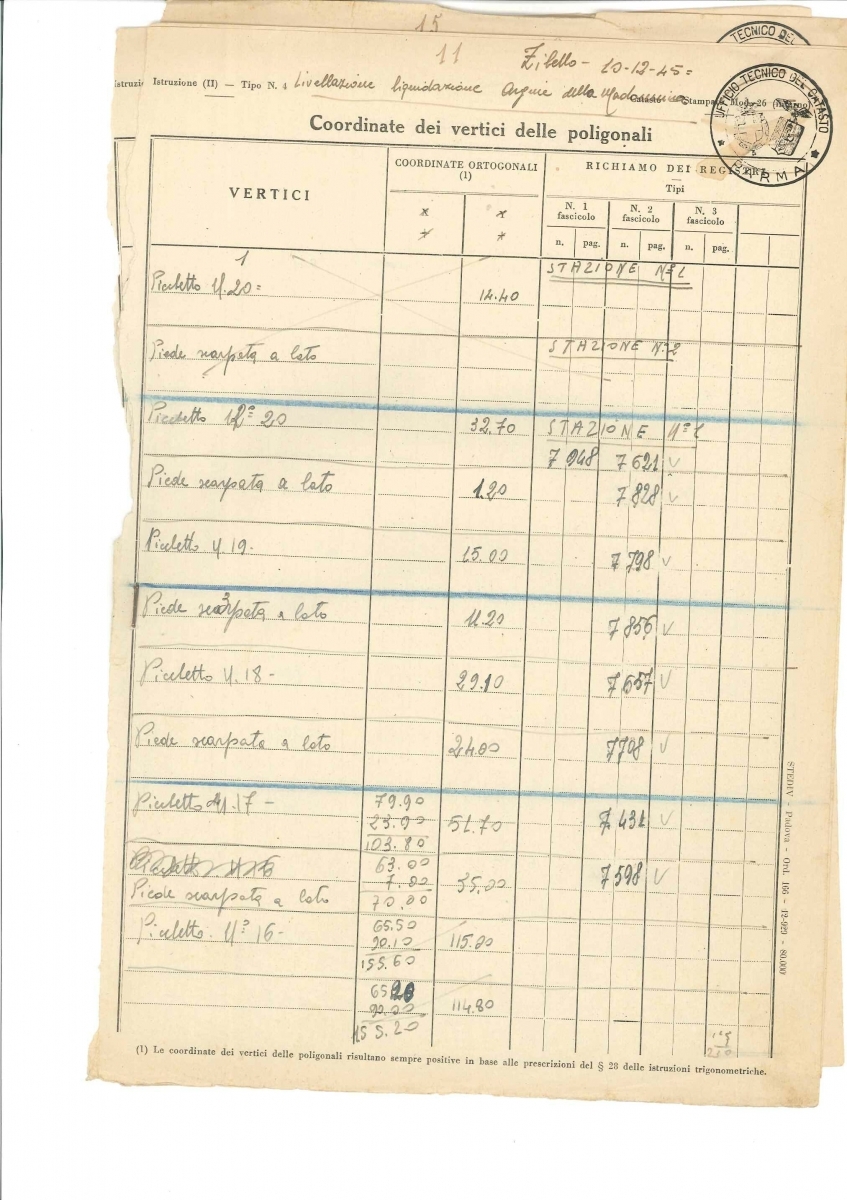 15
11
Zibello - 10-12-45=
Istruzione (II) — Tipo N. 4 Livellazione liquidazione Argine della
Catasto Stampa Mod. 26 (interno)
TECNICO DEL
UFFICIO TECNICO DEL CATASTO
PARMA
Coordinate dei vertici delle poligonali
VERTICI
COORDINATE ORTOGONALI
(1)
RICHIAMO DEI REGISTRI
Tipi
N. 1 fascicolo N. 2 fascicolo N. 3 fascicolo
x x
n. pag. n. pag. n. pag.
1
STAZIONE Nº1
Picchetto N.20= 14.40
Piede scarpata a lato STAZIONE N.2
Picchetto Nº 20 32.70 STAZIONE Nº 1
7948 7621 V
Piede scarpata a lato 1.20 7828 V
Picchetto N.19- 15.00 7798 V
Piede scarpata a lato 11.20 7856 V
Picchetto N.18- 29.10 7657 V
Piede scarpata a lato 24.00 7708 V
Picchetto N.17- 79.90
23.90 51.70 7431 V
103.80
63.00
7.00 35.00 7598 V
Piede scarpata a lato 70.00
Picchetto Nº 16- 65.50
90.10 115.00
155.60
6520
90.00 114.80
155.20
(1) Le coordinate dei vertici delle poligonali risultano sempre positive in base alle prescrizioni del § 28 delle istruzioni trigonometriche.
STEDIV - Padova - Ord. 166 - 12-929 - 80.000